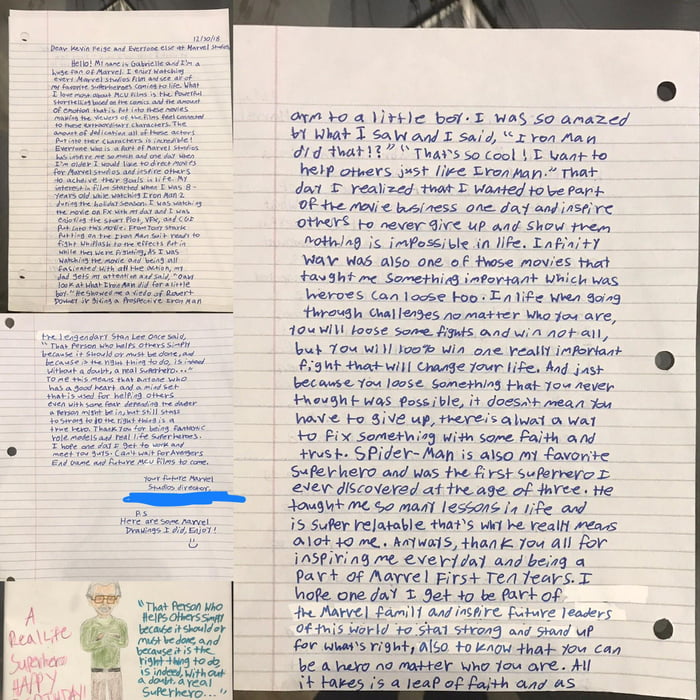 12/30/18
Dear Kevin Feige and Everyone else at Marvel Studios,
Hello! My name is Gabrielle and I'm a
huge fan of Marvel. I enjoy watching
every Marvel Studios film and see all of
my favorite superheroes coming to life. What
I love most about MCU films is the powerful
storytelling based on the comics and the amount
of emotion that is put into these movies
making the viewers of the films feel connected
to those extraordinary characters. The
amount of dedication all of those actors
put into their characters is incredible!
Everyone who is a part of Marvel Studios
has inspire me so much and one day when
I'm older I would like to direct movies
for Marvel Studios and inspire others
to acheive their goals in life. My
interest in film started when I was 8-
years old while watching Iron Man 2
during the holiday season. I was watching
the movie on FX with my dad and I was
enjoying the story Plot, VFX, and CGI
put into this movie. From Tony Stark
putting on the Iron Man suit ready to
fight Whiplash to the effects put in
while they were fighting. As I was
watching the movie and being all
fasinated with all the action, my
dad gets my attention and said, "Gaby
look at what Iron Man did for a little
boy." He showed me a video of Robert
Downey Jr giving a Prosthetic Iron Man
arm to a little boy. I was so amazed
by what I saw and I said, "Iron Man
did that!?" "That's so cool! I want to
help others just like Iron Man." That
day I realized that I wanted to be part
of the movie business one day and inspire
others to never give up and show them
nothing is impossible in life. Infinity
War was also one of those movies that
taught me something important which was
heroes can loose too. In life when going
through challenges no matter who you are,
you will loose some fights and win not all,
but you will 100% win one really important
fight that will change your life. And just
because you loose something that you never
thought was possible, it doesn't mean you
have to give up, there is alway a way
to fix something with some faith and
trust. Spider-Man is also my favorite
superhero and was the first superhero I
ever discovered at the age of three. He
taught me so many lessons in life and
is super relatable that's why he really means
alot to me. Anyways, thank you all for
inspiring me everyday and being a
part of Marvel First Ten Years. I
hope one day I get to be part of
the Marvel family and inspire future leaders
of this world to stay strong and stand up
for what's right, also to know that you can
be a hero no matter who you are. All
it takes is a leap of faith and as
the lengendary Stan Lee once said,
"That person who helps others simply
because it should or must be done, and
because it is the right thing to do, is indeed
without a doubt, a real superhero..."
To me this means that anyone who
has a good heart and a mind set
that is used for helping others
even with some fear depending the danger
a person might be in, but still stays
to strong to do the right thing is a
true hero. Thank you for being fantastic
role models and real life superheroes.
I hope one day I get to work and
meet you guys. Can't wait for Avengers
End Game and future MCU films to come.
Your future Marvel
Studios director,
P.S
Here are some Marvel
Drawings I did, Enjoy!
A
Real Life
Superhero
HAPPY
BIRTHDAY!
"That Person Who
Helps others simply
because it should or
must be done, and
because it is the
right thing to do,
is indeed, without
a doubt, a real
Superhero..."